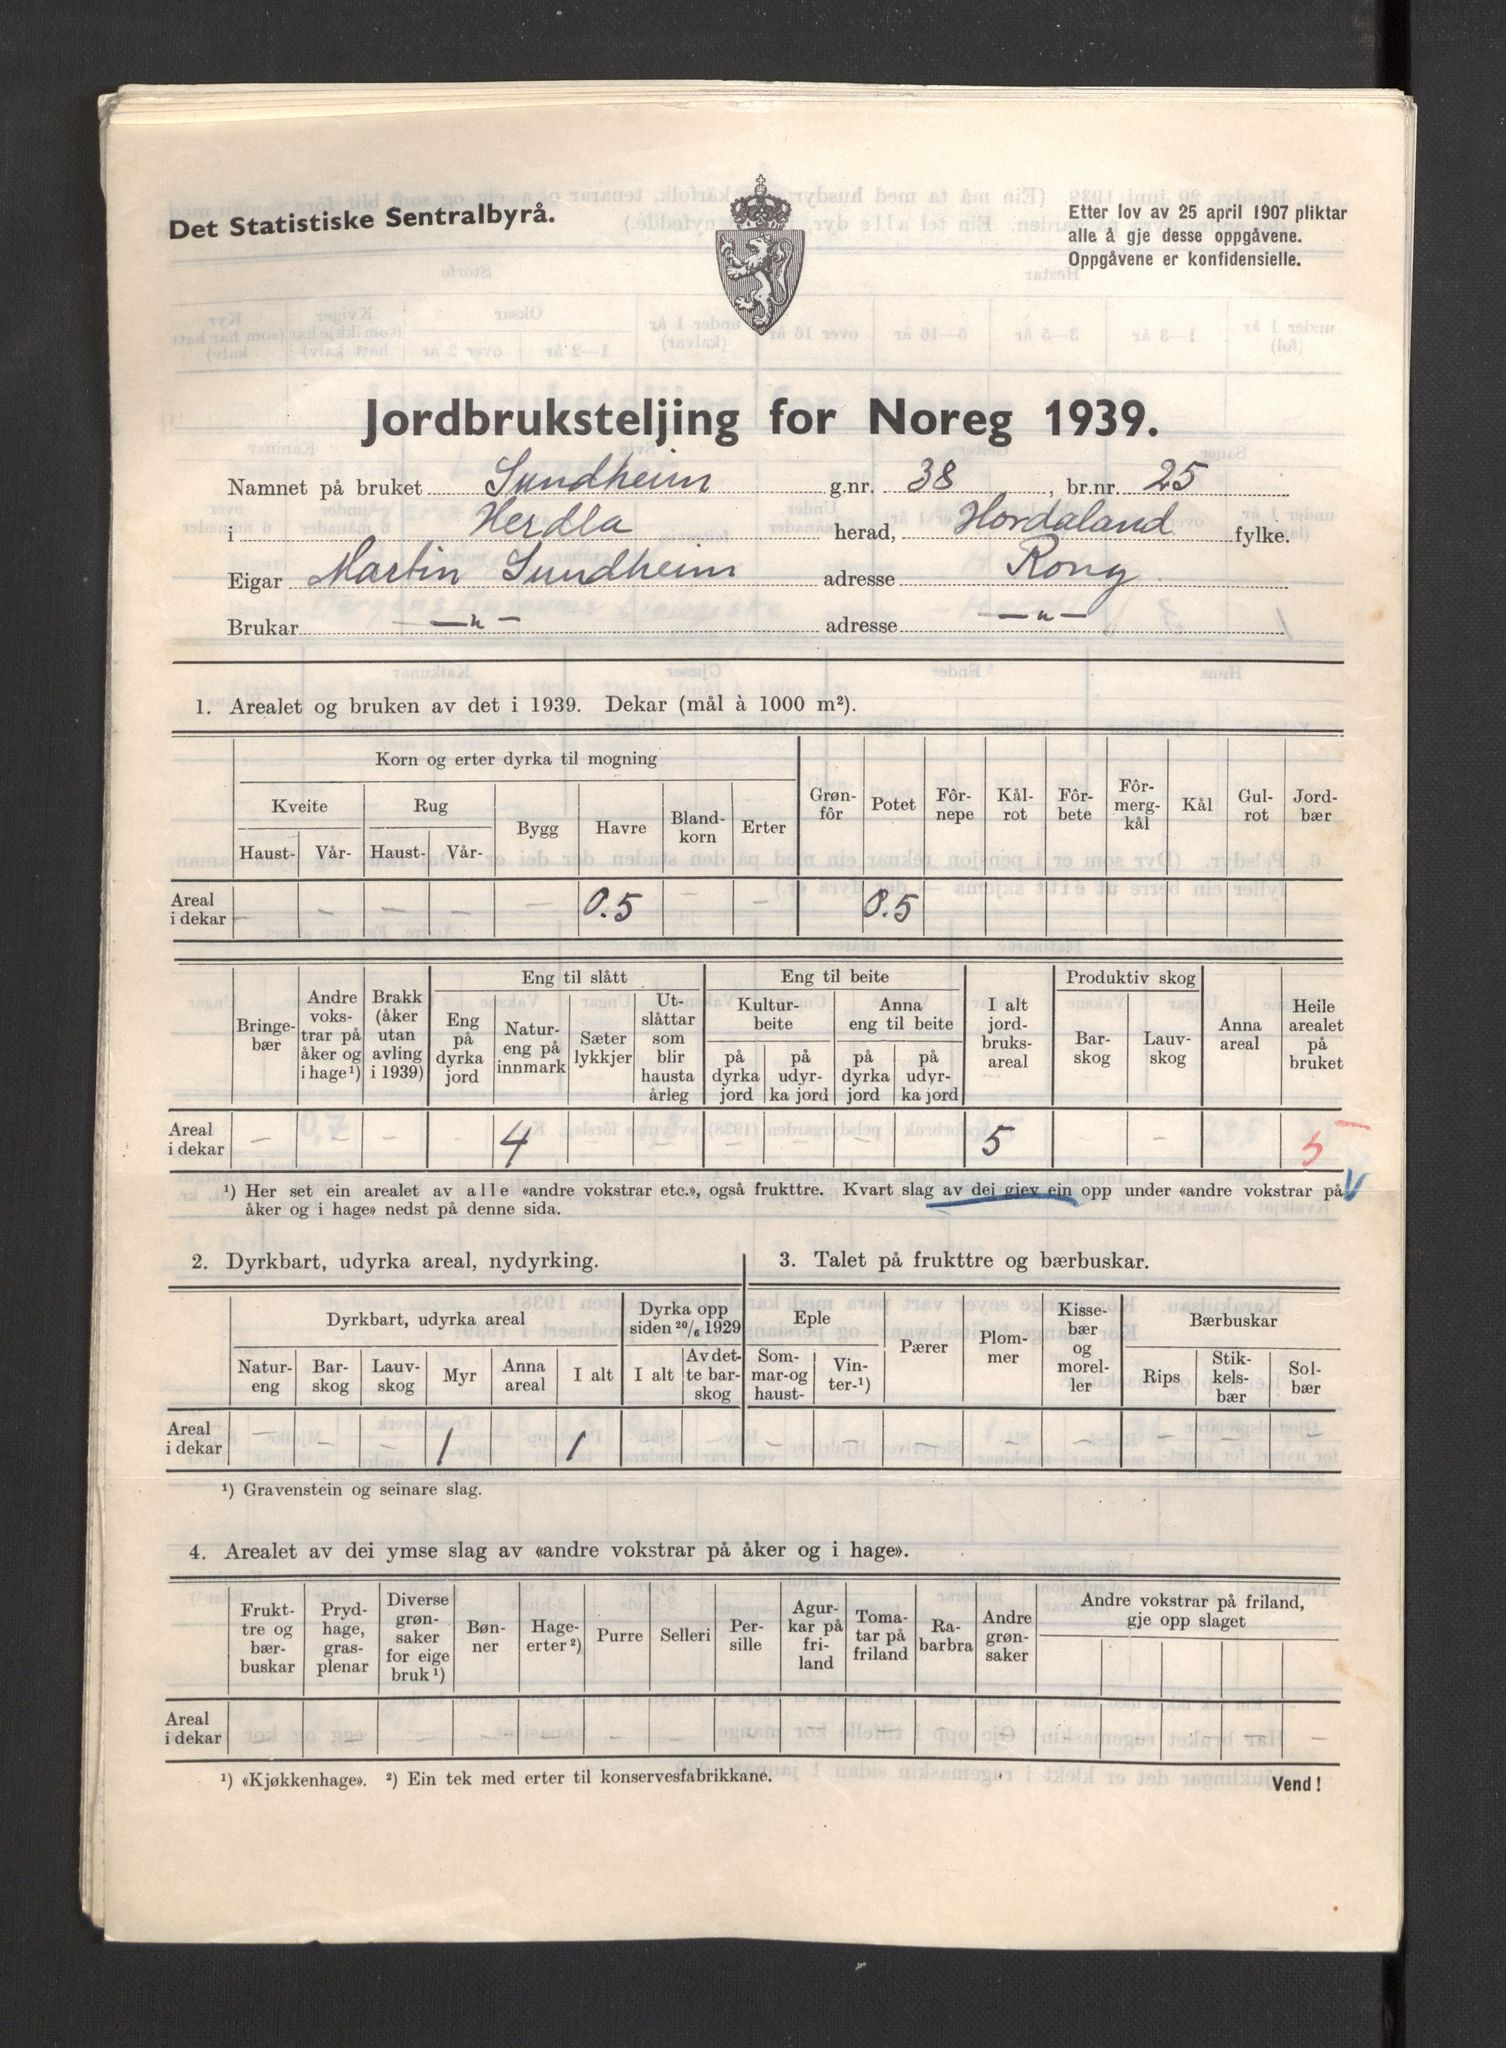 Det Statistiske Sentralbyrå.
Etter lov av 25 april 1907 pliktar
alle å gje desse oppgåvene.
Oppgåvene er konfidensielle.
Jordbruksteljing for Noreg 1939.
Namnet på bruket Sundheim g.nr. 38, br.nr. 25
i Herdla herad, Hordaland fylke.
Eigar Martin Sundheim adresse Rong
Brukar —„— adresse —„—
1. Arealet og bruken av det i 1939. Dekar (mål à 1000 m²).
Korn og erter dyrka til mogning
Kveite Rug Bygg Havre Blandkorn Erter Grønfôr Potet Fôrnepe Kålrot Fôrbete Fôrmergkål Kål Gulrot Jordbær
Haust- Vår- Haust- Vår-
Areal i dekar — — — — — 0.5 — — 0.5
Bringebær Andre vokstrar på åker og i hage¹) Brakk (åker utan avling i 1939) Eng til slått Eng til beite I alt jordbruksareal Produktiv skog Anna areal Heile arealet på bruket
Eng på dyrka jord Natureng på innmark Sæterlykkjer Utslåttar som blir hausta årleg Kulturbeite Anna eng til beite Barskog Lauvskog
på dyrka jord på udyrka jord på dyrka jord på udyrka jord
Areal i dekar — — — 4 — — — — — — 5 — — 5
¹) Her set ein arealet av alle «andre vokstrar etc.», også frukttre. Kvart slag av dei gjev ein opp under «andre vokstrar på V
åker og i hage» nedst på denne sida.
2. Dyrkbart, udyrka areal, nydyrking.
3. Talet på frukttre og bærbuskar.
Dyrkbart, udyrka areal Dyrka opp siden 20/6 1929 Eple Pærer Plommer Kissebær og moreller Bærbuskar
Natureng Barskog Lauvskog Myr Anna areal I alt I alt Av dette barskog Sommar- og haust- Vinter-¹) Rips Stikkelsbær Solbær
Areal i dekar — — — 1 — 1 — — — — — — — — — —
¹) Gravenstein og seinare slag.
4. Arealet av dei ymse slag av «andre vokstrar på åker og i hage».
Frukttre og bærbuskar Prydhage, grasplenar Diverse grønsaker for eige bruk¹) Bønner Hageerter²) Purre Selleri Persille Agurkar på friland Tomatar på friland Rabarbra Andre grønsaker Andre vokstrar på friland, gje opp slaget
Areal i dekar — — — — — — — — — — — — — — — —
¹) «Kjøkkenhage». ²) Ein tek med erter til konservesfabrikkane.
Vend!